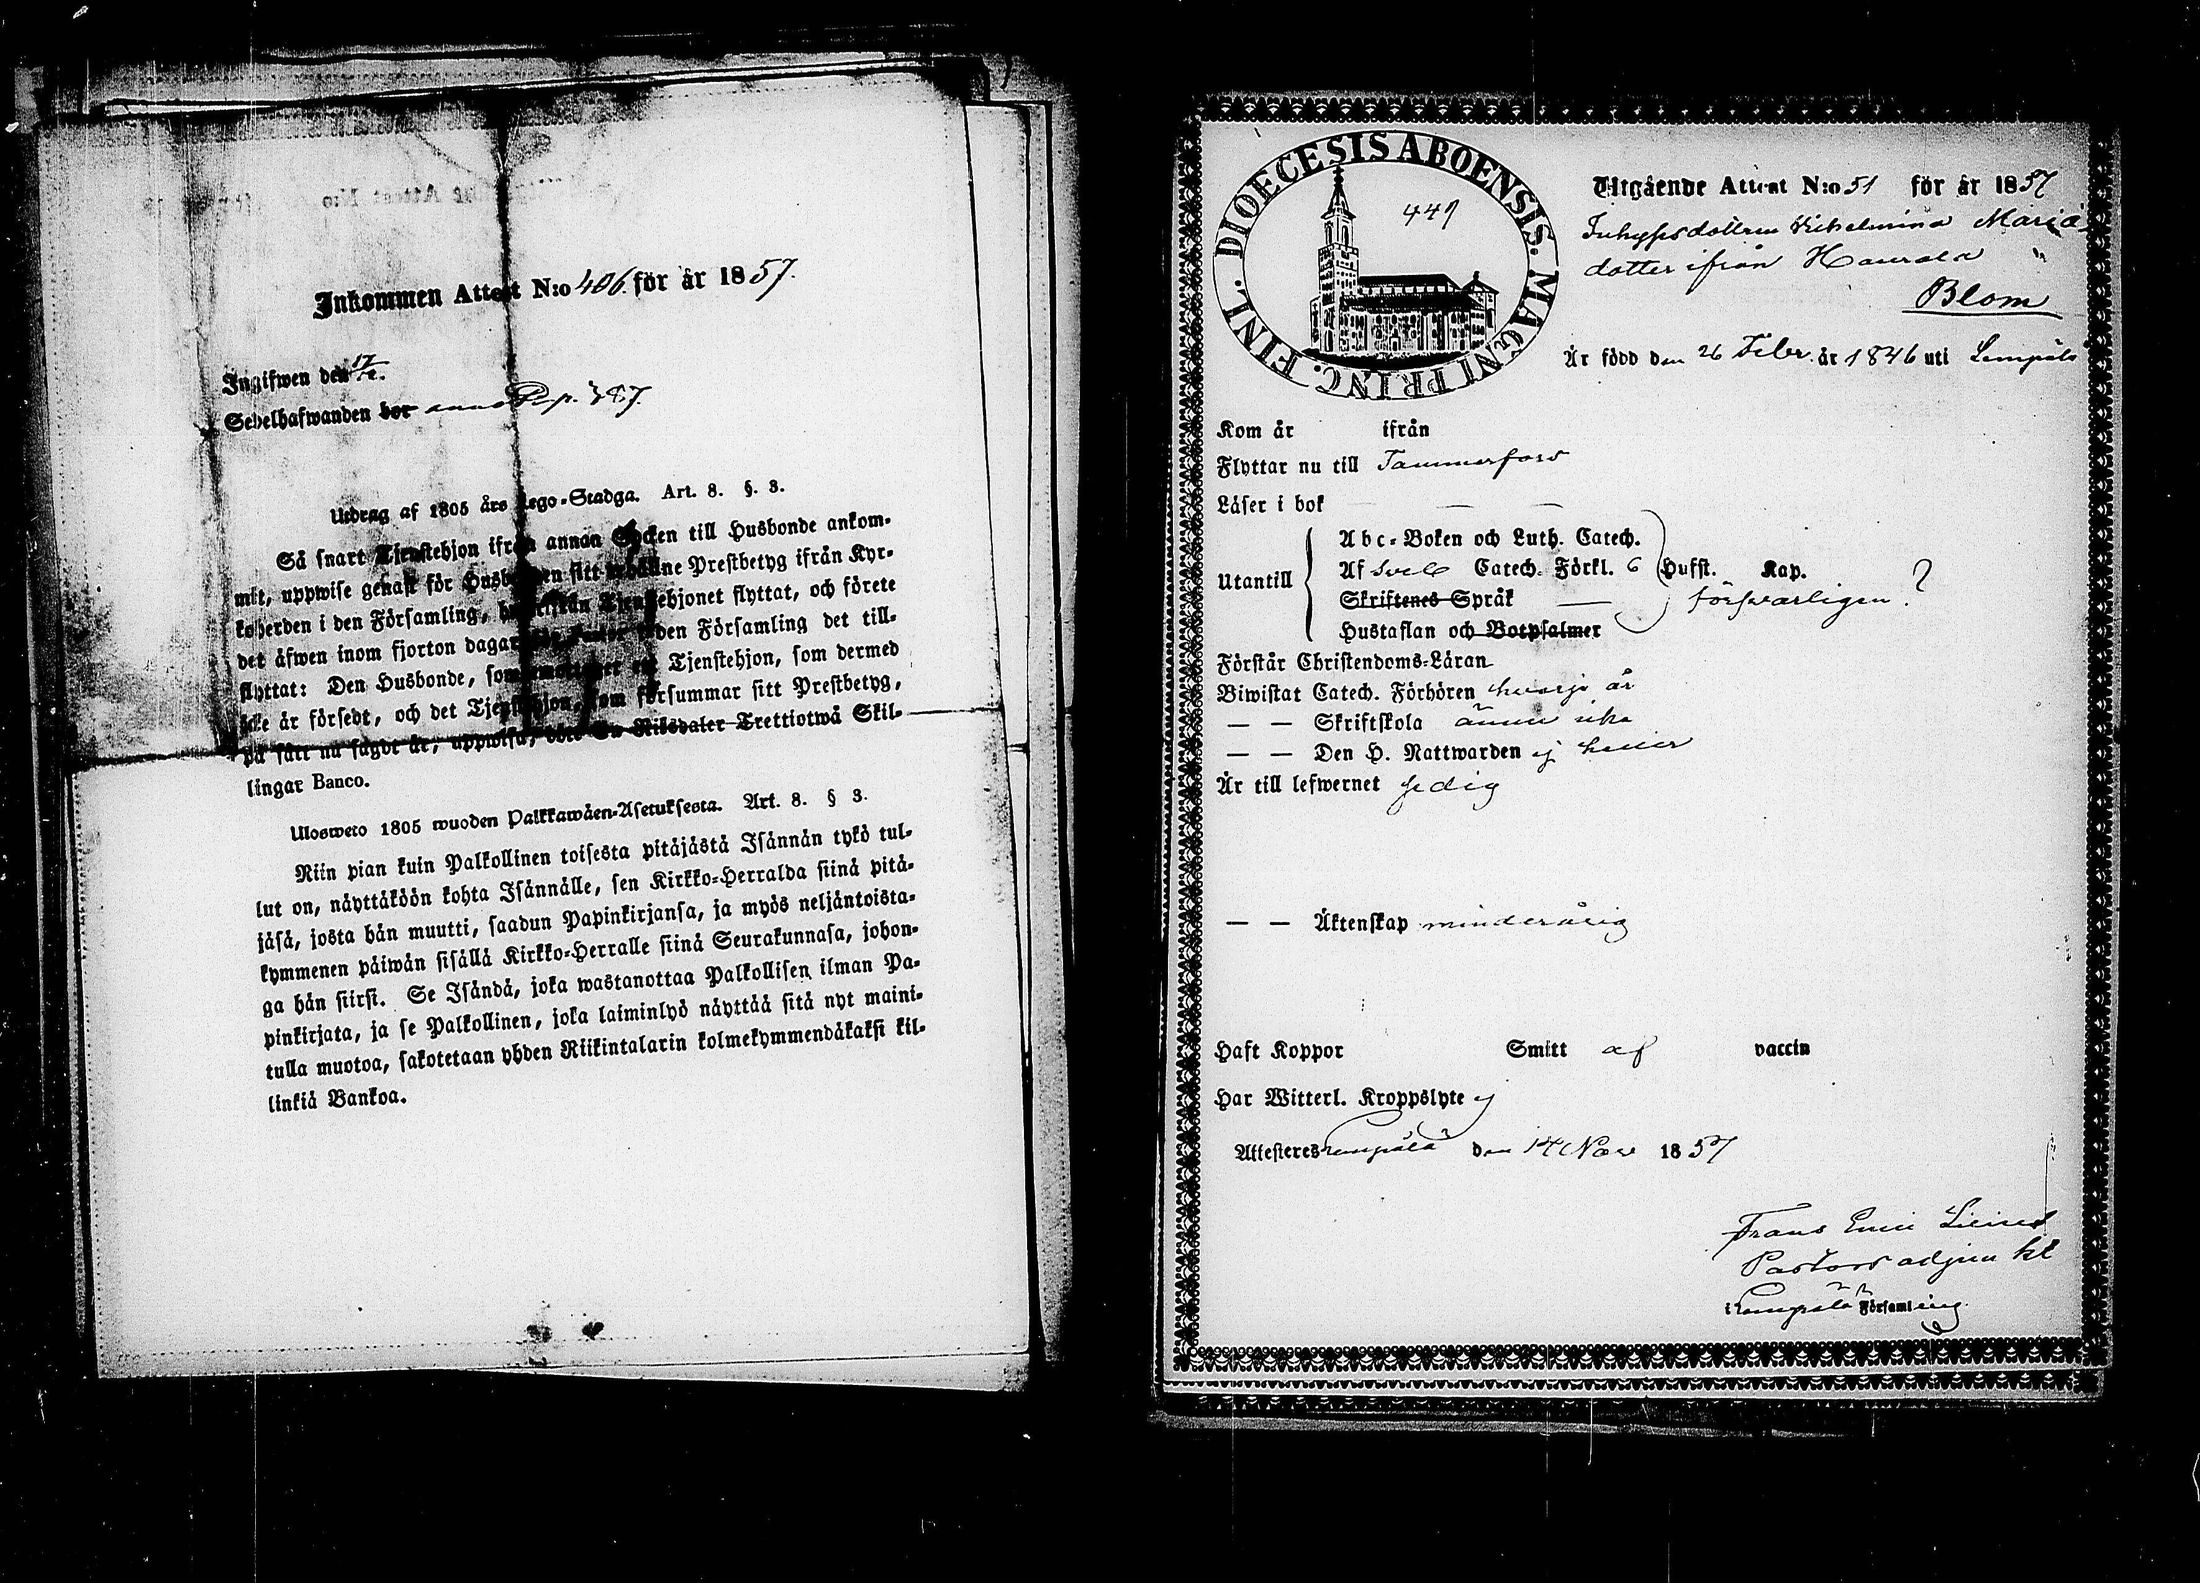 Inkommen Attest N:o 406. för år 1857.
Ingifwen den 17/12.
Sedelhafwanden bor p. 787.
Utdrag af 1805 års Lego-Stadga. Art. 8. §. 3.
Så snart Tjenstehjon ifrån annan Socken till Husbonde ankom-
mit, uppwise genast för Husbonden sitt Prestbetyg ifrån Kyr-
koherden i den Församling, Tjenstehjonet flyttat, och förete
det äfwen inom fjorton dagar den Församling det till-
flyttat: Den Husbonde, som Tjenstehjon, som dermed
icke är försedt, och det Tjenstehjon, som försummar sitt Prestbetyg,
på sätt nu sagdt är, uppwisa, böte En Riksdaler Trettiotwå Skil-
lingar Banco.
Ulosweto 1805 wuoden Palkkawäen-Asetuksesta. Art. 8. § 3.
Niin pian kuin Palkollinen toisesta pitäjästä Isännän tykö tul-
lut on, näyttäköön kohta Isännälle, sen Kirkko-Herralda siinä pitä-
jäsä, josta hän muutti, saadun Papinkirjansa, ja myös neljäntoista-
kymmenen päiwän sisällä Kirkko-Herralle siinä Seurakunnasa, johon-
ga hän siirsi. Se Isändä, joka wastanottaa Palkollisen ilman Pa-
pinkirjata, ja se Palkollinen, joka laiminlyö näyttää sitä nyt maini-
tulla muotoa, sakotetaan yhden Riikintalarin kolmekymmendäkaksi kil-
linkiä Bankoa.
DIOECESIS ABOENSIS. MAGNI PRINC. FINL.
447
Utgående Attest N:o 51 för år 1857
Inhysesdottren Vilhelmina Maria
dotter ifrån
Blom
Är född den 26 Febr. år 1846 uti Lempälä
Kom år ifrån
Flyttar nu till Tammerfors
Läser i bok — — —
Utantill
Abc-Boken och Luth. Catech.
Af Sveb Catech. Förkl. 6 Husst. Kap.
Skriftenes Språk — försvarligen ?
Hustaflan och Botpsalmer
Förstår Christendoms-Läran
Biwistat Catech. Förhören hvarje år
— — Skriftskola ännu icke
— — Den H. Nattwarden ej heller
Är till lefwernet sedig
— — Äktenskap minderårig
Haft Koppor Smitt af vaccin
Har Witterl. Kroppslyte ej
Attesteres Lempälä den 14 Nov 1857
Frans Emil
Pastors adjunkt
i Lempälä Församling.